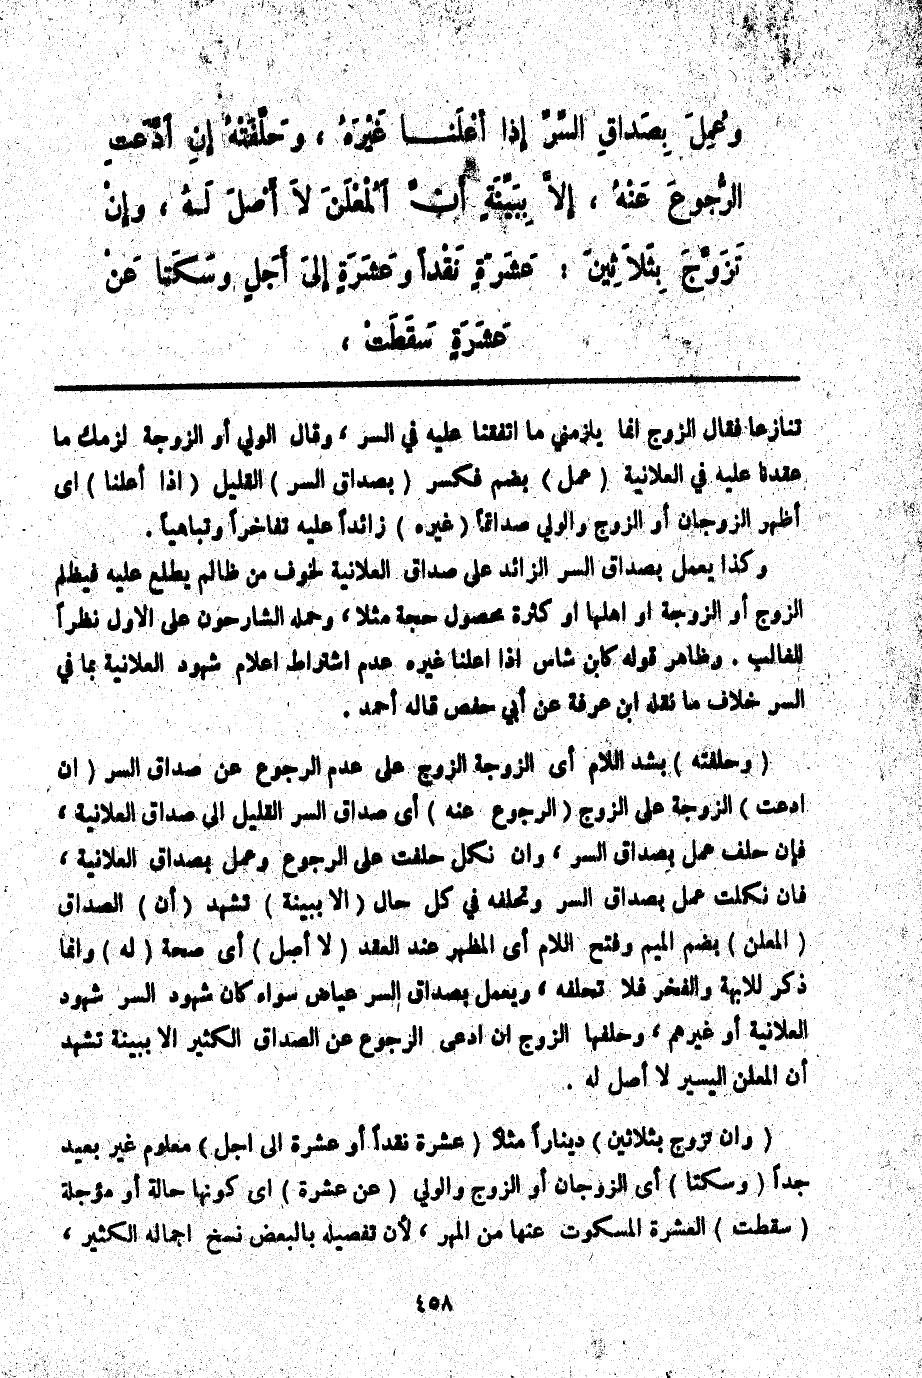 وَعُمِلَ بِصَداقِ السِّرِّ إِذا أَعْلَنــا غَيْرَهُ ، وَحَلَّفَتْهُ إِنِ ادَّعَتِ
الرُّجوعَ عَنْهُ ، إِلاَّ بِبَيِّنَةٍ أَنَّ الْمُعْلَنَ لاَ أَصْلَ لَــهُ ، وإِنْ
تَزَوَّجَ بِثَلاَثِينَ : عَشَرَةٍ نَقْداً وعَشَرَةٍ إِلىَ أَجَلٍ وسَكَتا عَنْ
عَشَرَةٍ سَقَطَتْ ،
تنازعا فقال الزوج انما يلزمني ما اتفقنا عليه في السر ، وقال الولي أو الزوجة لزمك ما
عقدنا عليه في العلانية ( عمل ) بضم فكسر ( بصداق السر ) القليل ( اذا أعلنا ) اى
أظهر الزوجان أو الزوج والولي صداقاً ( غيره ) زائداً عليه تفاخراً وتباهياً .
وكذا يعمل بصداق السر الزائد على صداق العلانية لخوف من ظالم يطلع عليه فيظلم
الزوج أو الزوجة او اهلها او كثرة محصول حجة مثلا ، وحمله الشارحون على الاول نظراً
للغالب . وظاهر قوله كابن شاس اذا اعلنا غيره عدم اشتراط اعلام شهود العلانية بما في
السر خلاف ما نقله ابن عرفة عن أبي حفص قاله أحمد .
( وحلفته ) بشد اللام أى الزوجة الزوج على عدم الرجوع عن صداق السر ( ان
ادعت ) الزوجة على الزوج ( الرجوع عنه ) أى صداق السر القليل الى صداق العلانية ،
فإن حلف عمل بصداق السر ، وان نكل حلفت على الرجوع وعمل بصداق العلانية ،
فان نكلت عمل بصداق السر وتحلفه في كل حال ( الا ببينة ) تشهد ( أن ) الصداق
( المعلن ) بضم الميم وفتح اللام أى المظهر عند العقد ( لا أصل ) أى صحة ( له ) وانما
ذكر للابهة والفخر فلا تحلفه ، ويعمل بصداق السر عياض سواء كان شهود السر شهود
العلانية أو غيرهم ، وحلفها الزوج ان ادعى الرجوع عن الصداق الكثير الا ببينة تشهد
أن المعلن اليسير لا أصل له .
( وان تزوج بثلاثين ) ديناراً مثلاً ( عشرة نقداً أو عشرة الى اجل ) معلوم غير بعيد
جداً ( وسكتا ) أى الزوجان أو الزوج والولي ( عن عشرة ) اى كونها حالة أو مؤجلة
( سقطت ) العشرة المسكوت عنها من المهر ، لأن تفصيله بالبعض نسخ اجماله الكثير ،
٤٥٨